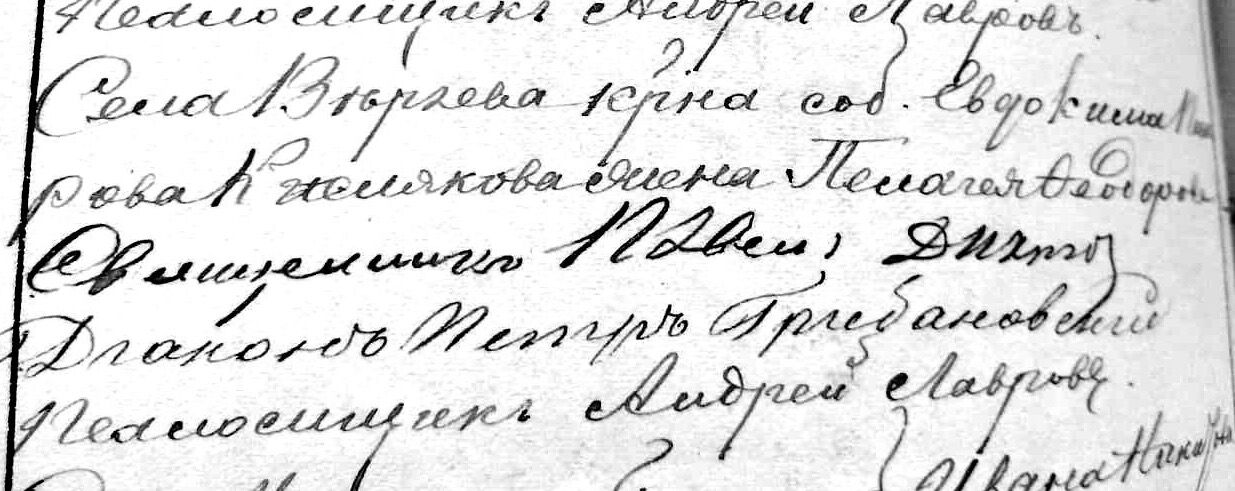 Псаломщикъ Андрей Лавровъ.
Села Вырзева кр҃на соб. Евдокима
рова жена Пелагея Ѳеодоров
Священникъ Павелъ
Діаконъ Петръ Грибановскій
Псаломщикъ Андрей Лавровъ.
Ивана